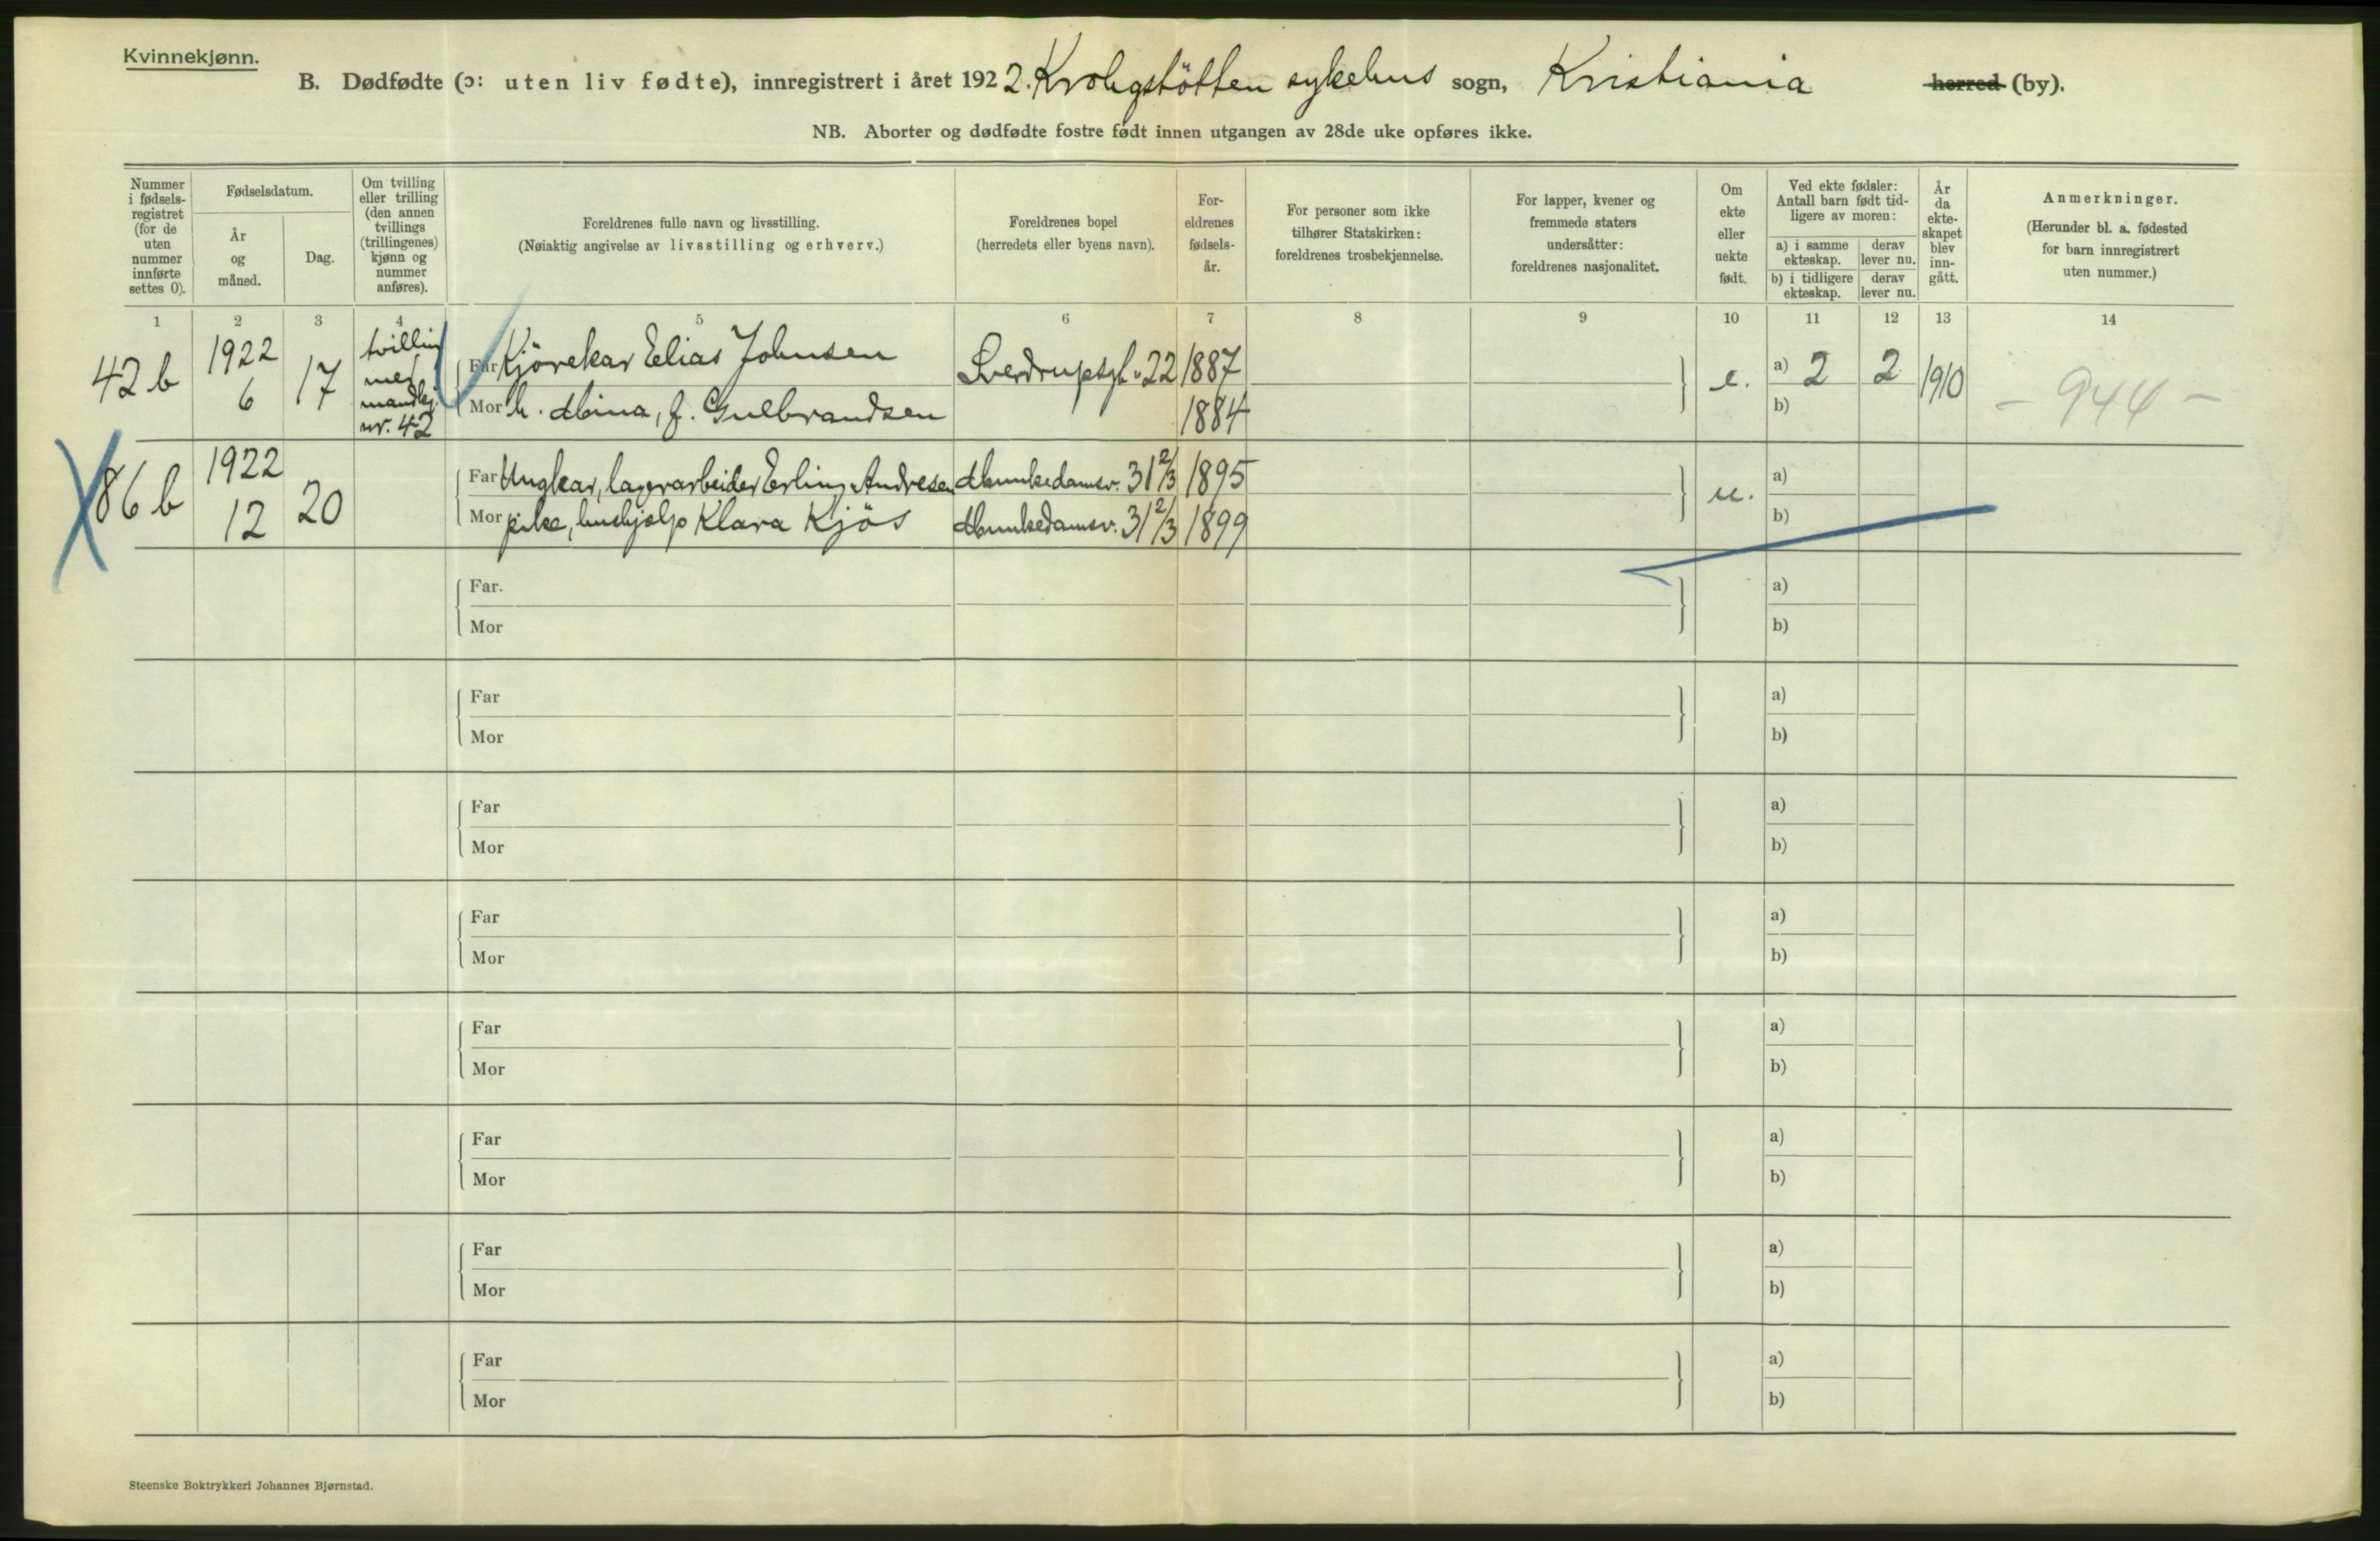 Kvinnekjønn.
B. Dødfødte (ɔ: uten liv fødte), innregistrert i året 1922. Krohgstötten sykehus sogn, Kristiania herred (by).
NB. Aborter og dødfødte fostre født innen utgangen av 28de uke opføres ikke.
Nummer i fødselsregistret (for de uten nummer innførte settes 0).
Fødselsdatum.
År og måned.
Dag.
Om tvilling eller trilling (den annen tvillings (trillingenes) kjønn og nummer anføres).
Foreldrenes fulle navn og livsstilling.
(Nøiaktig angivelse av livsstilling og erhverv.)
Foreldrenes bopel
(herredets eller byens navn).
Foreldrenes fødselsår.
For personer som ikke tilhører Statskirken: foreldrenes trosbekjennelse.
For lapper, kvener og fremmede staters undersåtter: foreldrenes nasjonalitet.
Om ekte eller uekte født.
Ved ekte fødsler: Antall barn født tidligere av moren:
a) i samme ekteskap.
derav lever nu.
b) i tidligere ekteskap.
derav lever nu.
År da ekteskapet blev inngått.
Anmerkninger.
(Herunder bl. a. fødested for barn innregistrert uten nummer.)
1 2 3 4 5 6 7 8 9 10 11 12 13 14
42 b 1922 6 17 tvilling med mandkj. nr. 42
Far Kjörekar Elias Johnsen Sverdrupsgt. 22 1887 e. a) 2 2 1910 - 944 -
Mor h. Mina, f. Gulbrandsen 1884 b)
86 b 1922 12 20
Far Ungkar, lagerarbeider Erling Andresen Munkedamsv. 31 2/3 1895 u. a)
Mor pike, hushjelp Klara Kjös Munkedamsv. 31 2/3 1899 b)
Far. a)
Mor b)
Far a)
Mor b)
Far a)
Mor b)
Far a)
Mor b)
Far a)
Mor b)
Far a)
Mor b)
Far a)
Mor b)
Far a)
Mor b)
Steenske Boktrykkeri Johannes Bjørnstad.